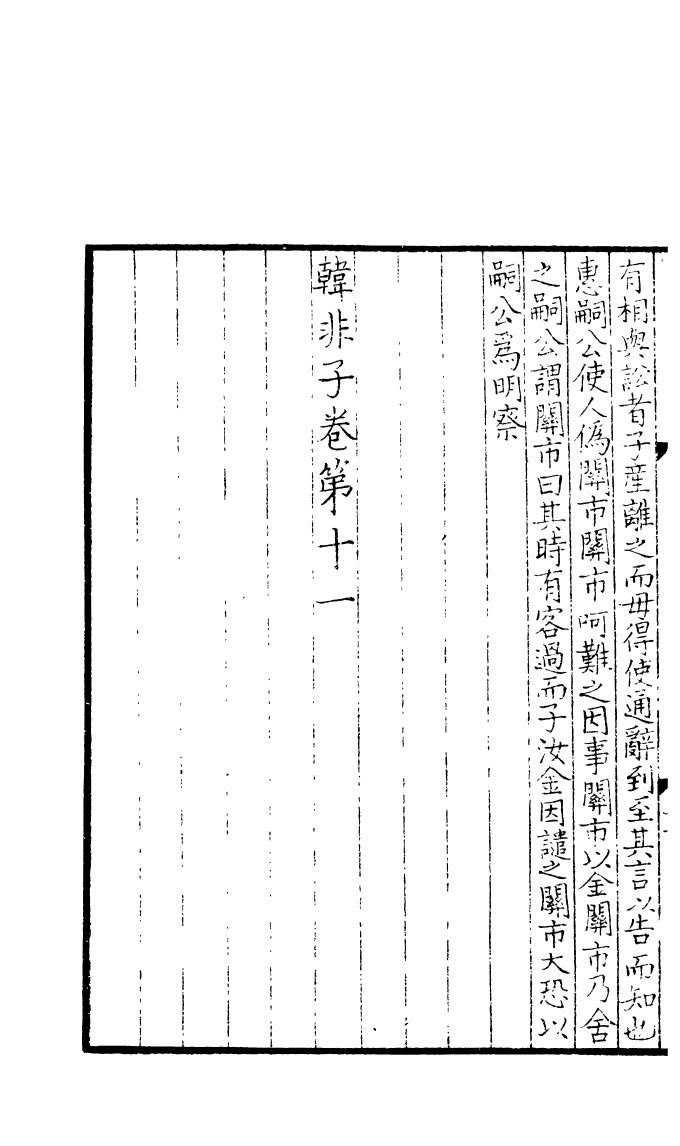 有相與訟者子産離之而毋得使通辭到至其言以告而知也
惠嗣公使人僞關市關市呵難之因事關市以金關市乃舍
之嗣公謂關市曰其時有客過而子汝金因譴之關市大恐以
嗣公爲明察
韓非子卷第十一